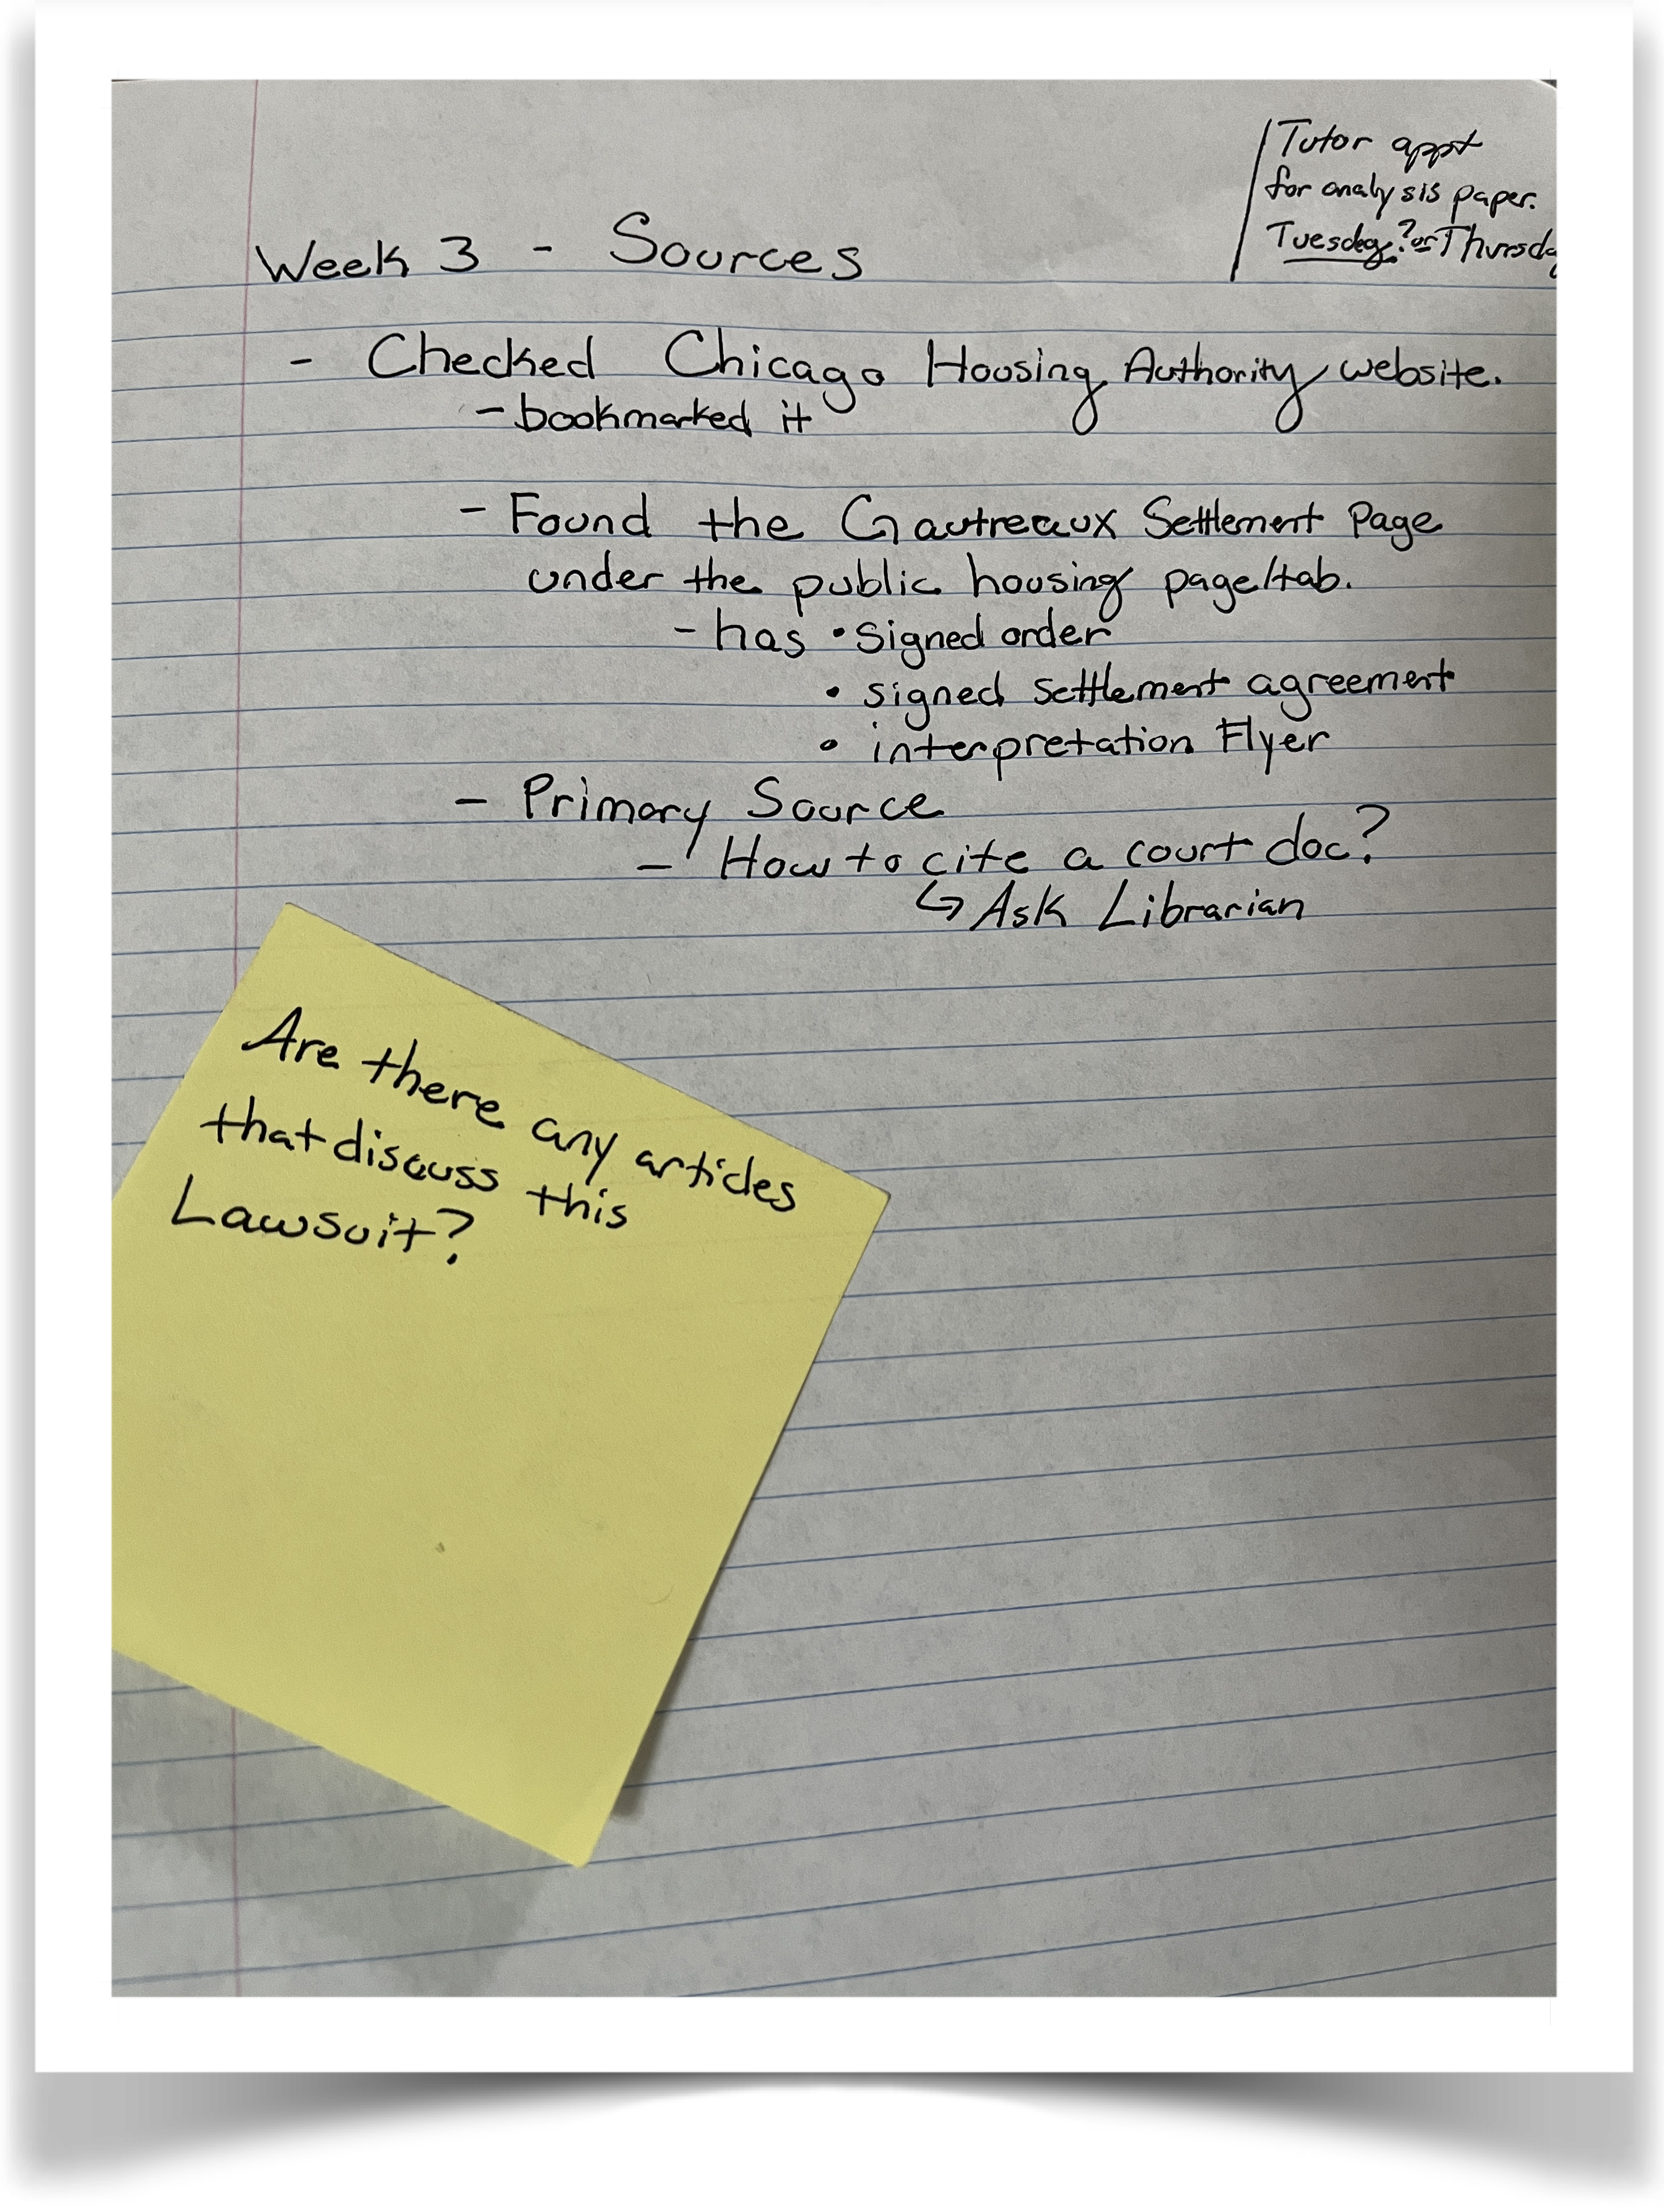 Tutor appt
for analysis paper.
Tuesday? or Thursda
Week 3 - Sources
- Checked Chicago Housing Authority website.
- bookmarked it
- Found the Gautreaux Settlement Page
under the public housing page/tab.
- has • Signed order
• signed settlement agreement
• interpretation Flyer
- Primary Source
- How to cite a court doc?
↳ Ask Librarian
Are there any articles
that discuss this
Lawsuit?